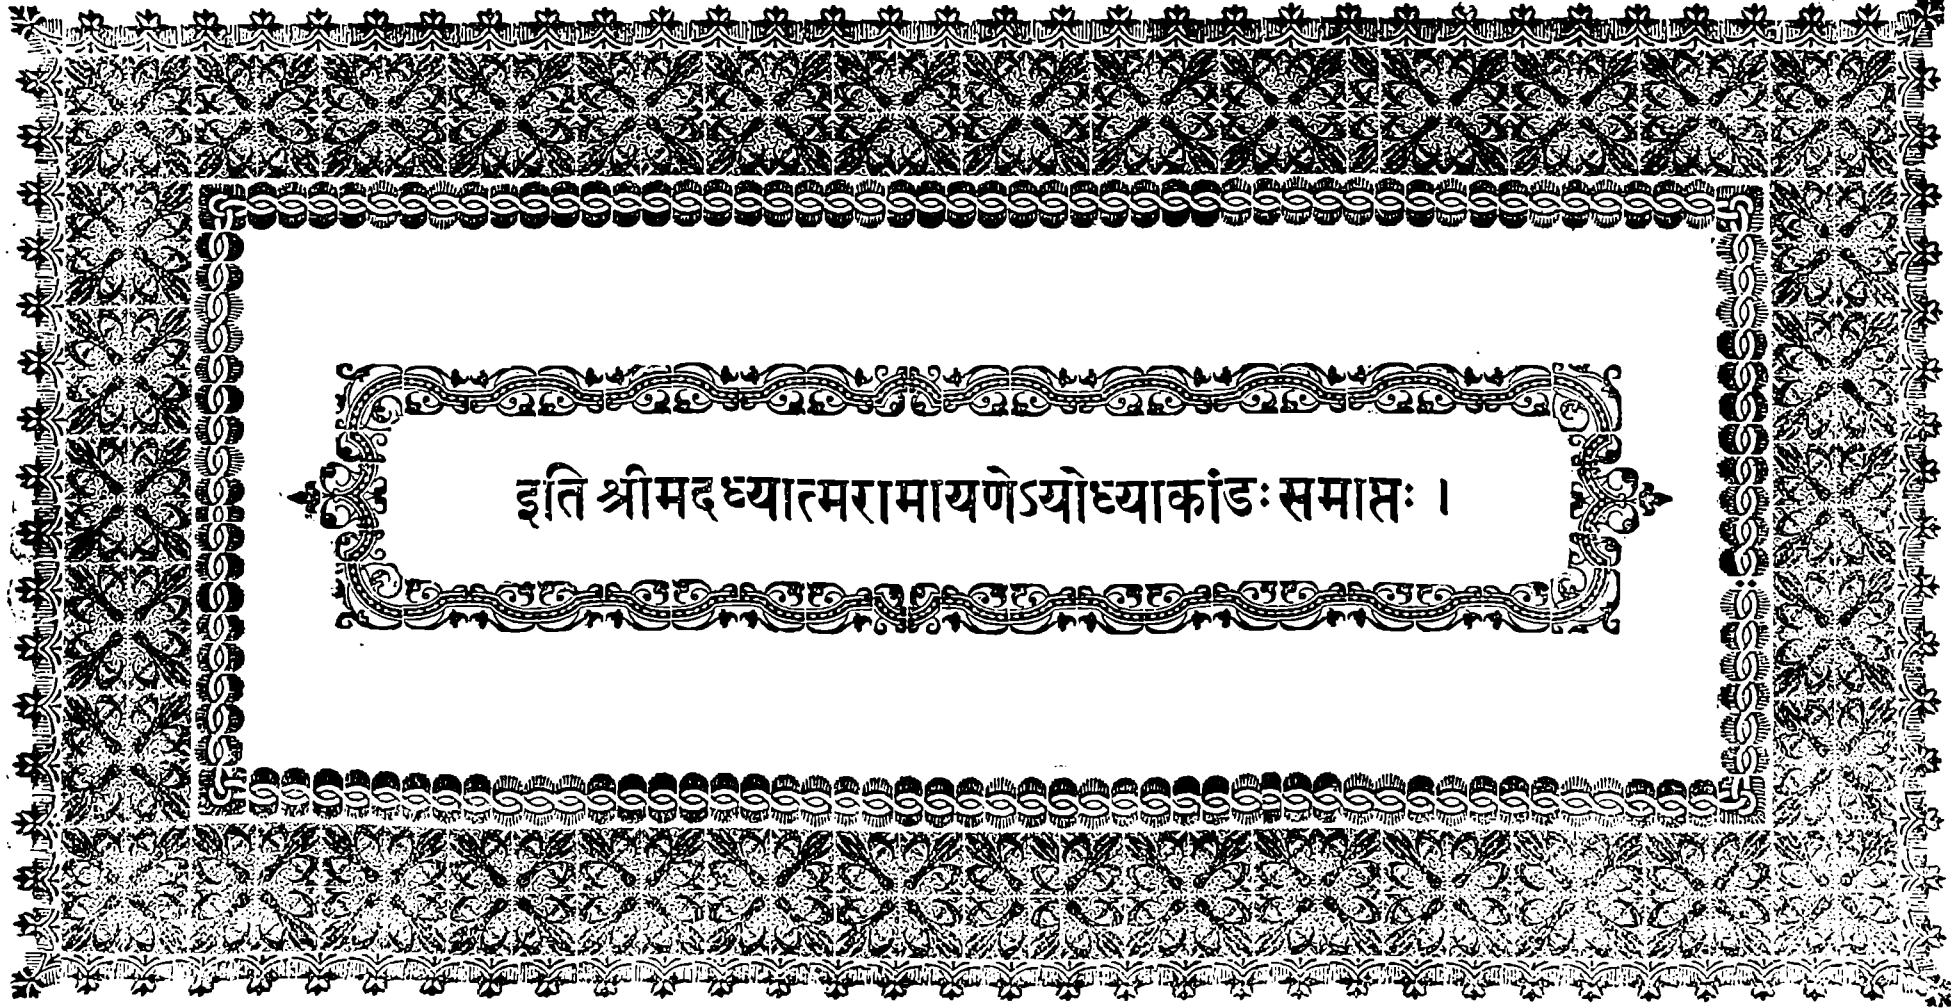 इति श्रीमदध्यात्मरामायणेऽयोध्याकांडः समाप्तः ।